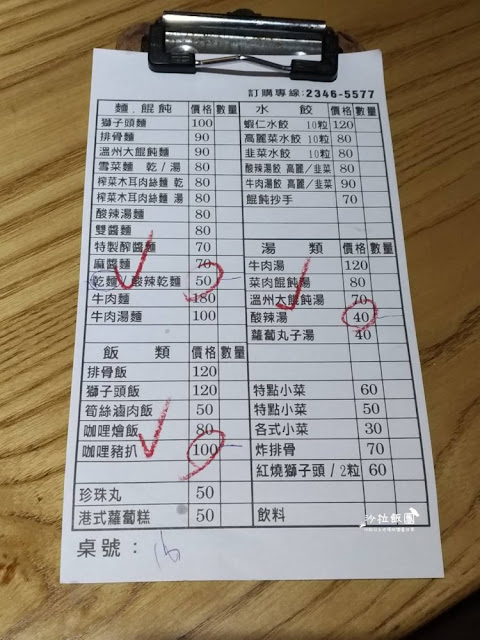 訂購專線:2346-5577
麵、餛飩 價格 數量
獅子頭麵 100
排骨麵 90
溫州大餛飩麵 90
雪菜麵 乾/湯 80
榨菜木耳肉絲麵 乾 80
榨菜木耳肉絲麵 湯 80
酸辣湯麵 80
雙醬麵 80
特製醡醬麵 70
麻醬麵 70
乾麵/酸辣乾麵 50
牛肉麵 180
牛肉湯麵 100
飯 類 價格 數量
排骨飯 120
獅子頭飯 120
筍絲滷肉飯 50
咖哩燴飯 80
咖哩豬扒 100
珍珠丸 50
港式蘿蔔糕 50
水 餃 價格 數量
蝦仁水餃 10粒 120
高麗菜水餃 10粒 80
韭菜水餃 10粒 80
酸辣湯餃 高麗/韭菜 80
牛肉湯餃 高麗/韭菜 90
餛飩抄手 70
湯 類 價格 數量
牛肉湯 120
菜肉餛飩湯 80
溫州大餛飩湯 70
酸辣湯 40
蘿蔔丸子湯 40
特點小菜 60
特點小菜 50
各式小菜 30
炸排骨 70
紅燒獅子頭/2粒 60
飲料
桌號: 16
沙拉飯團